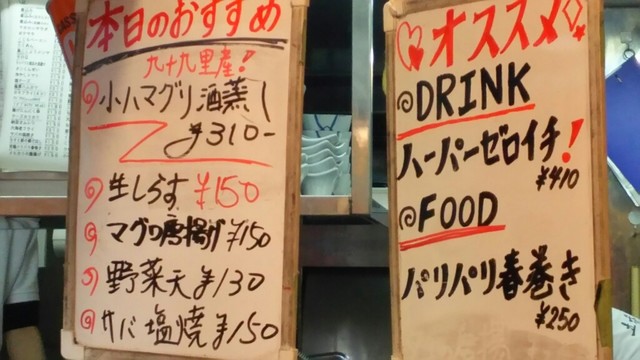 本日のおすすめ
九十九里産!
小ハマグリ酒蒸し
¥310-
生しらす ¥150
マグロ唐揚げ ¥150
野菜天 ¥130
サバ塩焼 ¥150
オススメ
DRINK
ハーパーゼロイチ!
¥410
FOOD
パリパリ春巻き
¥250